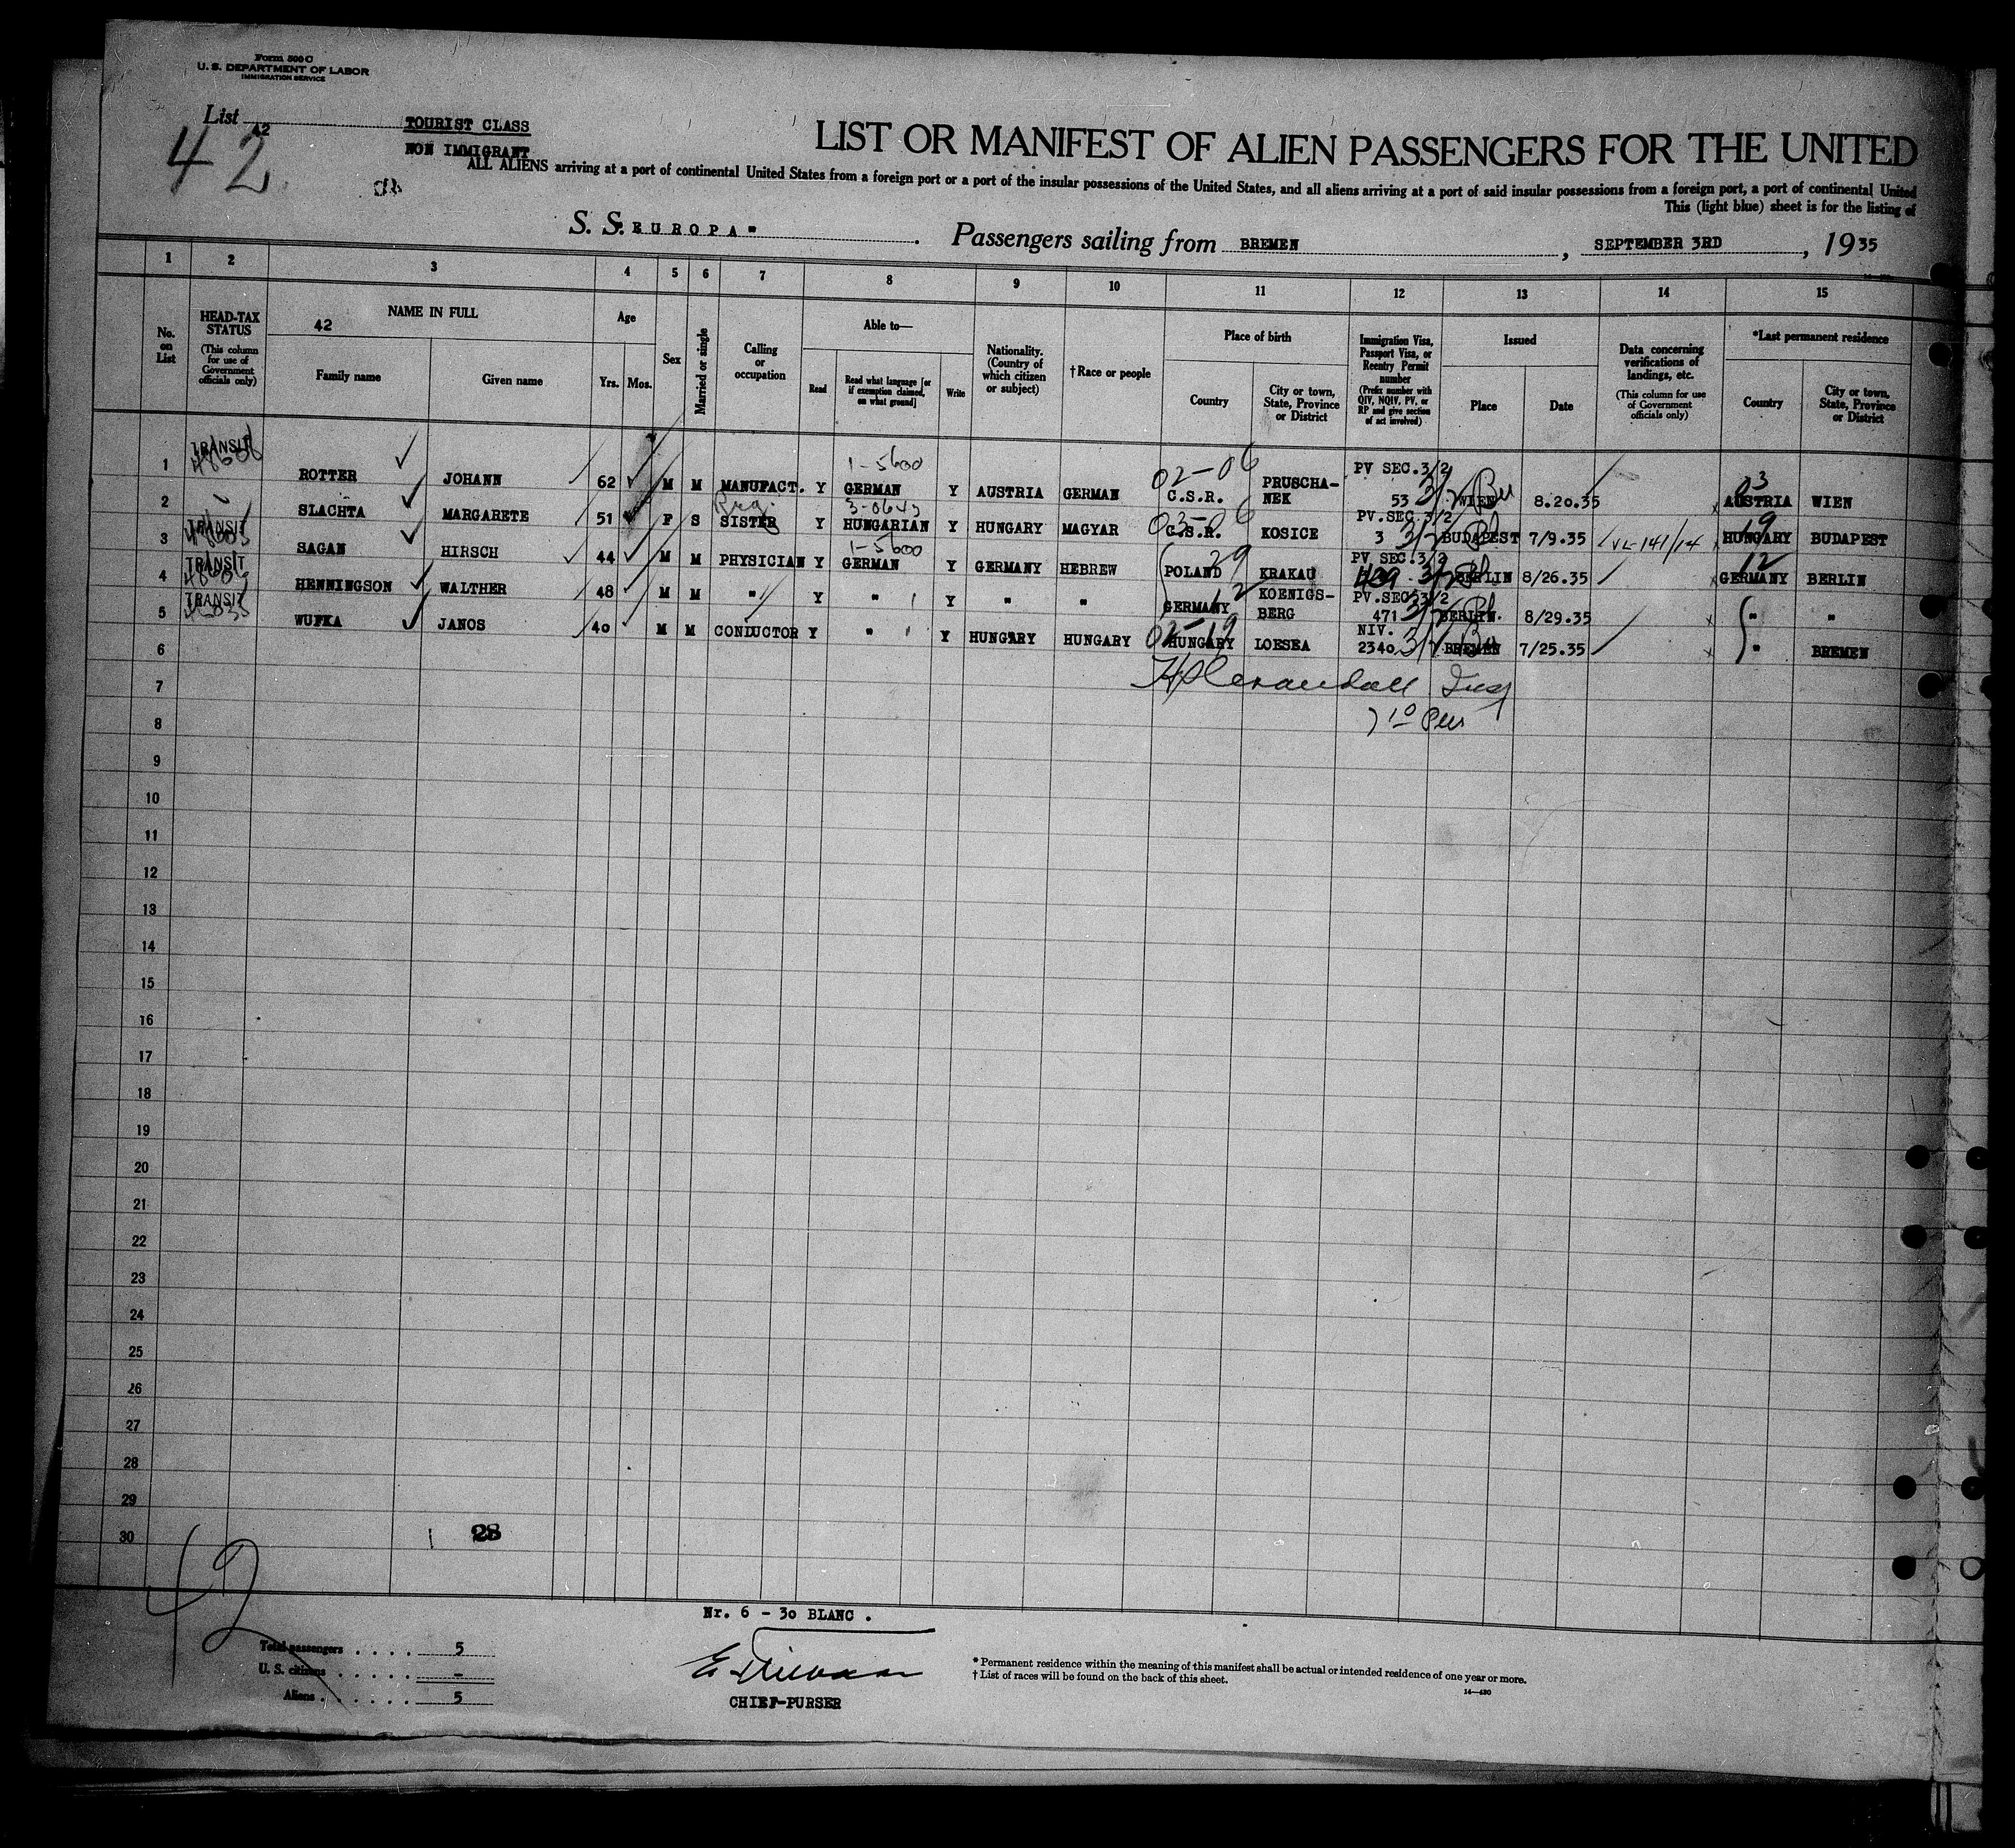 Form 500 C
U. S. DEPARTMENT OF LABOR
IMMIGRATION SERVICE
List 42
42
TOURIST CLASS
NON IMMIGRANT
LIST OR MANIFEST OF ALIEN PASSENGERS FOR THE UNITED
ALL ALIENS arriving at a port of continental United States from a foreign port or a port of the insular possessions of the United States, and all aliens arriving at a port of said insular possessions from a foreign port, a port of continental United
This (light blue) sheet is for the listing of
S. S. EUROPA" Passengers sailing from BREMEN, SEPTEMBER 3RD, 1935
1 2 3 4 5 6 7 8 9 10 11 12 13 14 15
No. on List
HEAD-TAX STATUS
(This column for use of Government officials only)
42 NAME IN FULL
Family name
Given name
Age
Yrs. Mos.
Sex
Married or single
Calling or occupation
Able to—
Read
Read what language [or if exemption claimed, on what ground]
Write
Nationality. (Country of which citizen or subject)
†Race or people
Place of birth
Country
City or town, State, Province or District
Immigration Visa, Passport Visa, or Reentry Permit number
(Prefix number with QIV, NQIV, PV, or RP and give section of act involved)
Issued
Place
Date
Data concerning verifications of landings, etc.
(This column for use of Government officials only)
*Last permanent residence
Country
City or town, State, Province or District
1 TRANSIT ROTTER JOHANN 62 M M MANUFACT. Y GERMAN 1-5600 Y AUSTRIA GERMAN 02-06 C.S.R. PRUSCHA-NEK PV SEC.3/2 53 WIEN 8.20.35 03 AUSTRIA WIEN
2 SLACHTA MARGARETE 51 F S SISTER Y HUNGARIAN Y HUNGARY MAGYAR 03-06 C.S.R. KOSICE PV.SEC.3/2 3 BUDAPEST 7/9.35 VL-141/14 19 HUNGARY BUDAPEST
3 TRANSIT SAGAN HIRSCH 44 M M PHYSICIAN Y GERMAN 1-5600 Y GERMANY HEBREW 29 POLAND KRAKAU PV SEC.3/2 439 BERLIN 8/26.35 12 GERMANY BERLIN
4 TRANSIT HENNINGSON WALTHER 48 M M " Y " Y " " 12 GERMANY KOENIGS-BERG PV.SEC.3/2 471 BERLIN. 8/29.35 " "
5 TRANSIT WUFKA JANOS 40 M M CONDUCTOR Y " Y HUNGARY HUNGARY 02-19 HUNGARY LOESEA NIV. 2340 BREMEN 7/25.35 " BREMEN
6
7
8
9
10
11
12
13
14
15
16
17
18
19
20
21
22
23
24
25
26
27
28
29
30
28
Nr. 6 - 30 BLANC .
Total passengers . . . . 5
U. S. citizens . . . . . -
Aliens . . . . . . 5
CHIEF-PURSER
* Permanent residence within the meaning of this manifest shall be actual or intended residence of one year or more.
† List of races will be found on the back of this sheet.
14—430